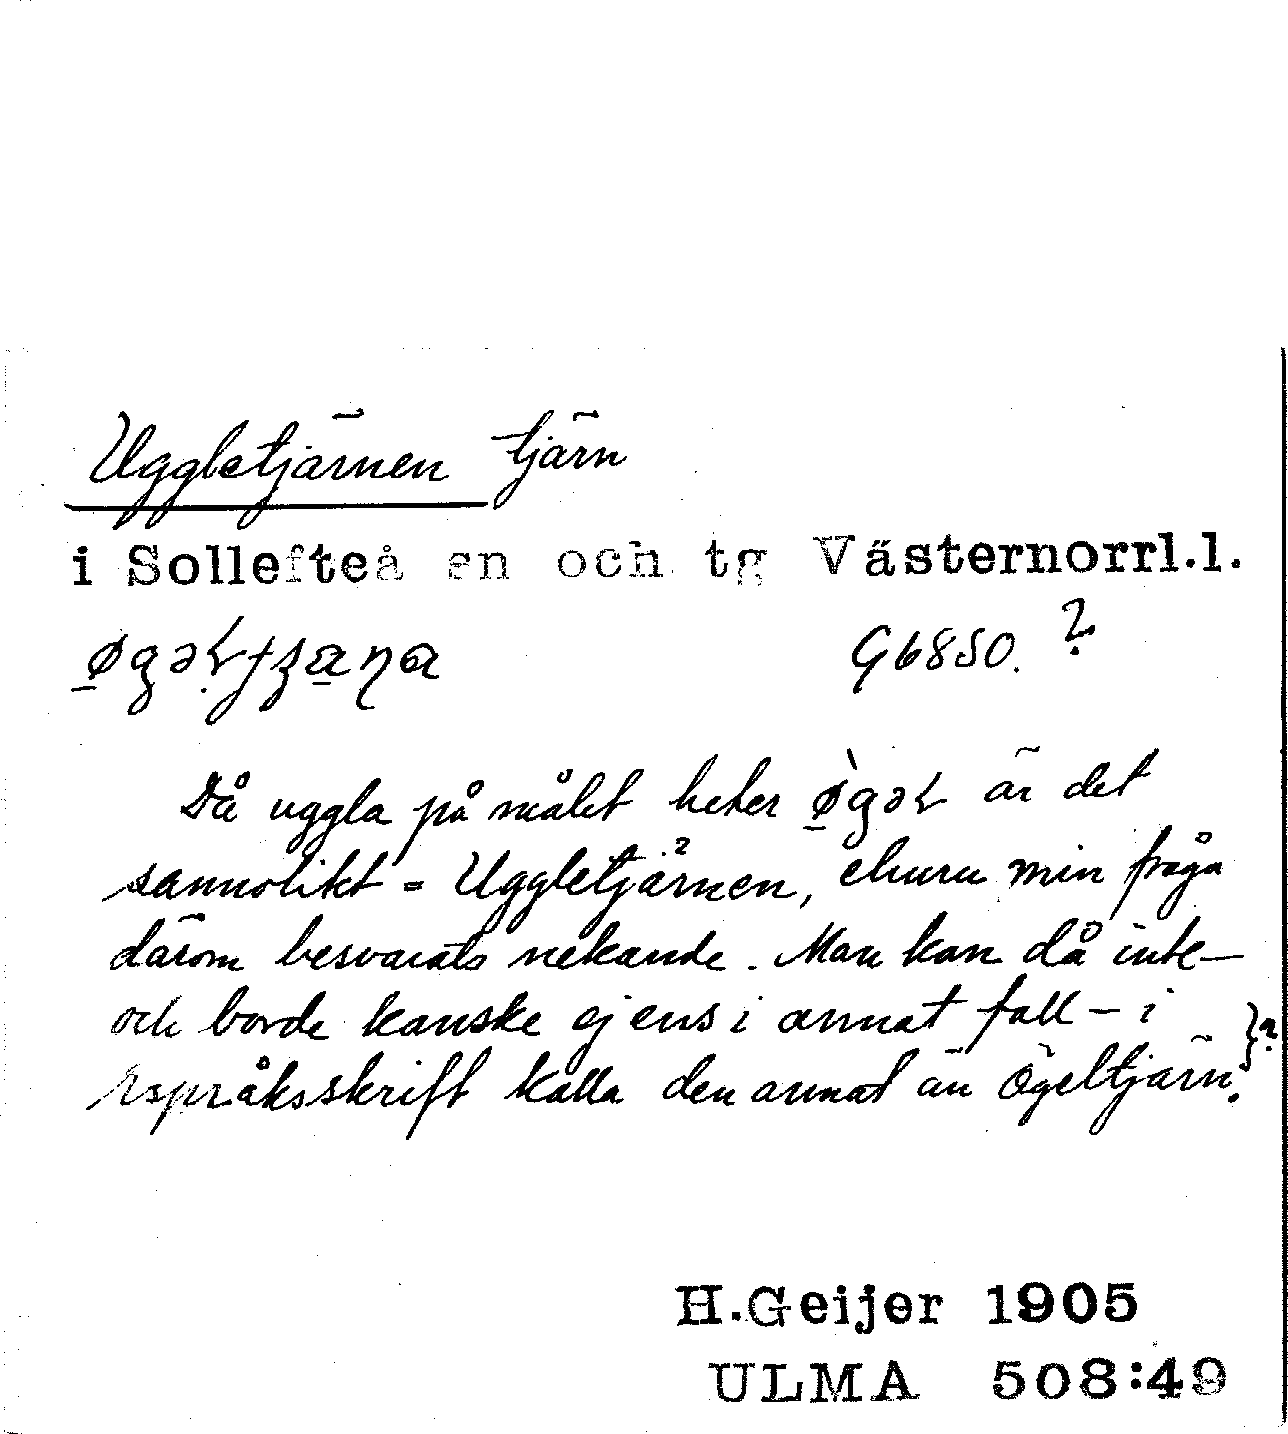 Uggletjärnen tjärn
i Sollefteå sn och tg Västernorrl.l.
G6850. ?
Då uggla på målet heter är det
sannolikt = Uggletjärnen, ehuru min fråga
därom besvarats nekande. Man kan då inte –
och borde kanske ej ens i annat fall – i
rspråksskrift kalla den annat än Ögeltjärn. }?
H.Geijer 1905
ULMA 508:49